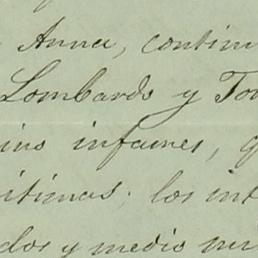 Anna, contin
Lombardo y To
ins infames, q
itimas; los int
dos y medio mi